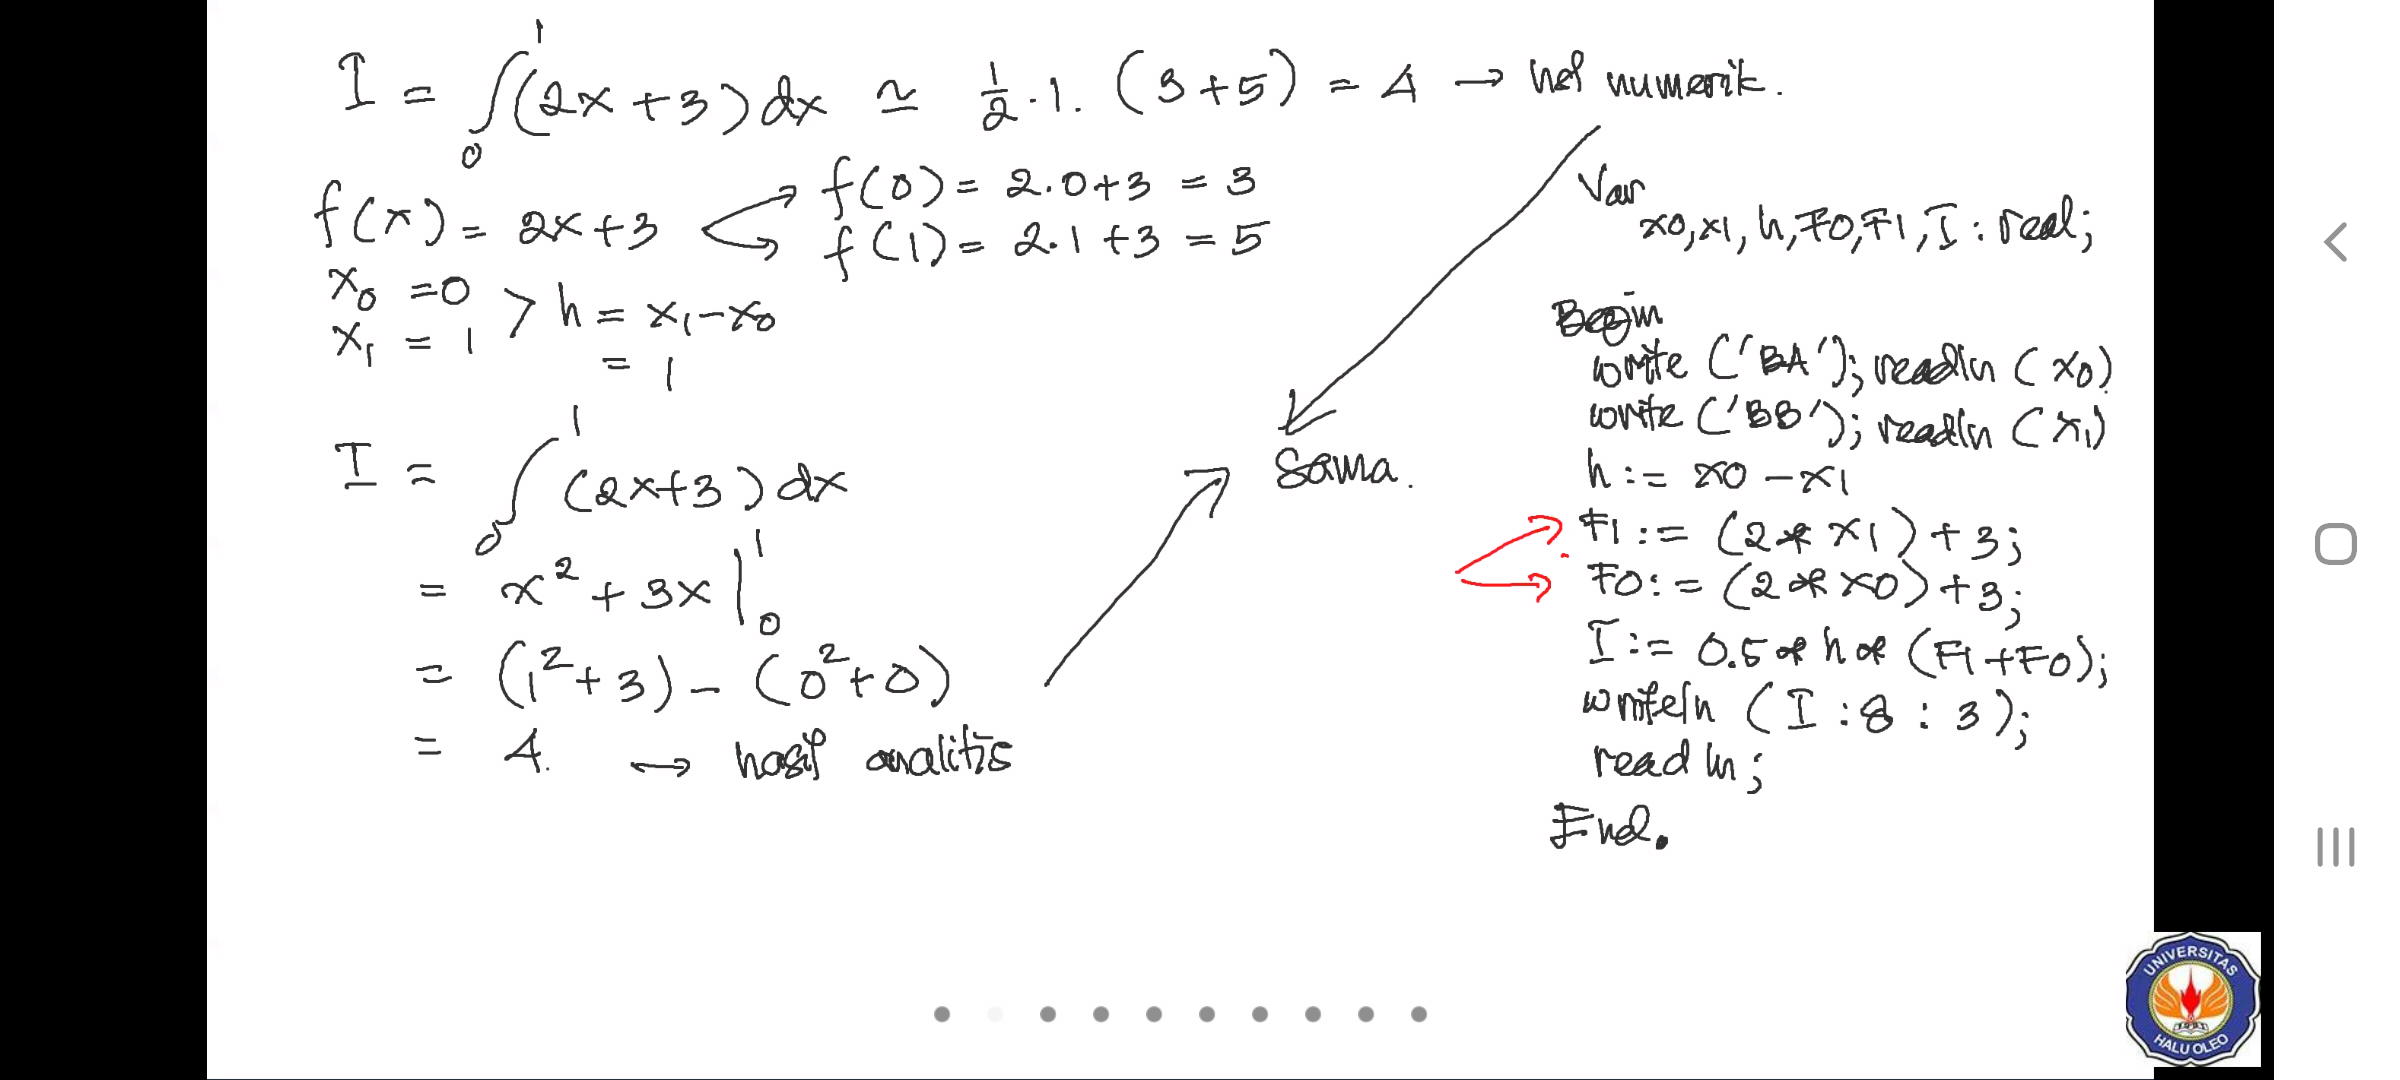 I = ∫₀¹ (2x+3) dx ≃ 1/2 . 1 . (3+5) = 4 → numerik.
f(x) = 2x+3
f(0) = 2.0+3 = 3
f(1) = 2.1+3 = 5
x₀ = 0 > h = x₁-x₀
x₁ = 1
= 1
I = ∫₀¹ (2x+3) dx
= x² + 3x |₀¹
= (1²+3) - (0²+0)
= 4. → hasil analitis
Sama.
Var
x0,x1, h,F0,F1,I : real;
Begin
write ('BA'); readln (x0)
write ('BB'); readln (x1)
h := x0 - x1
F1 := (2 * x1) + 3;
F0 := (2 * x0) + 3;
I := 0.5 * h * (F1+F0);
writeln (I : 8 : 3);
readln;
End.
UNIVERSITAS
HALU OLEO